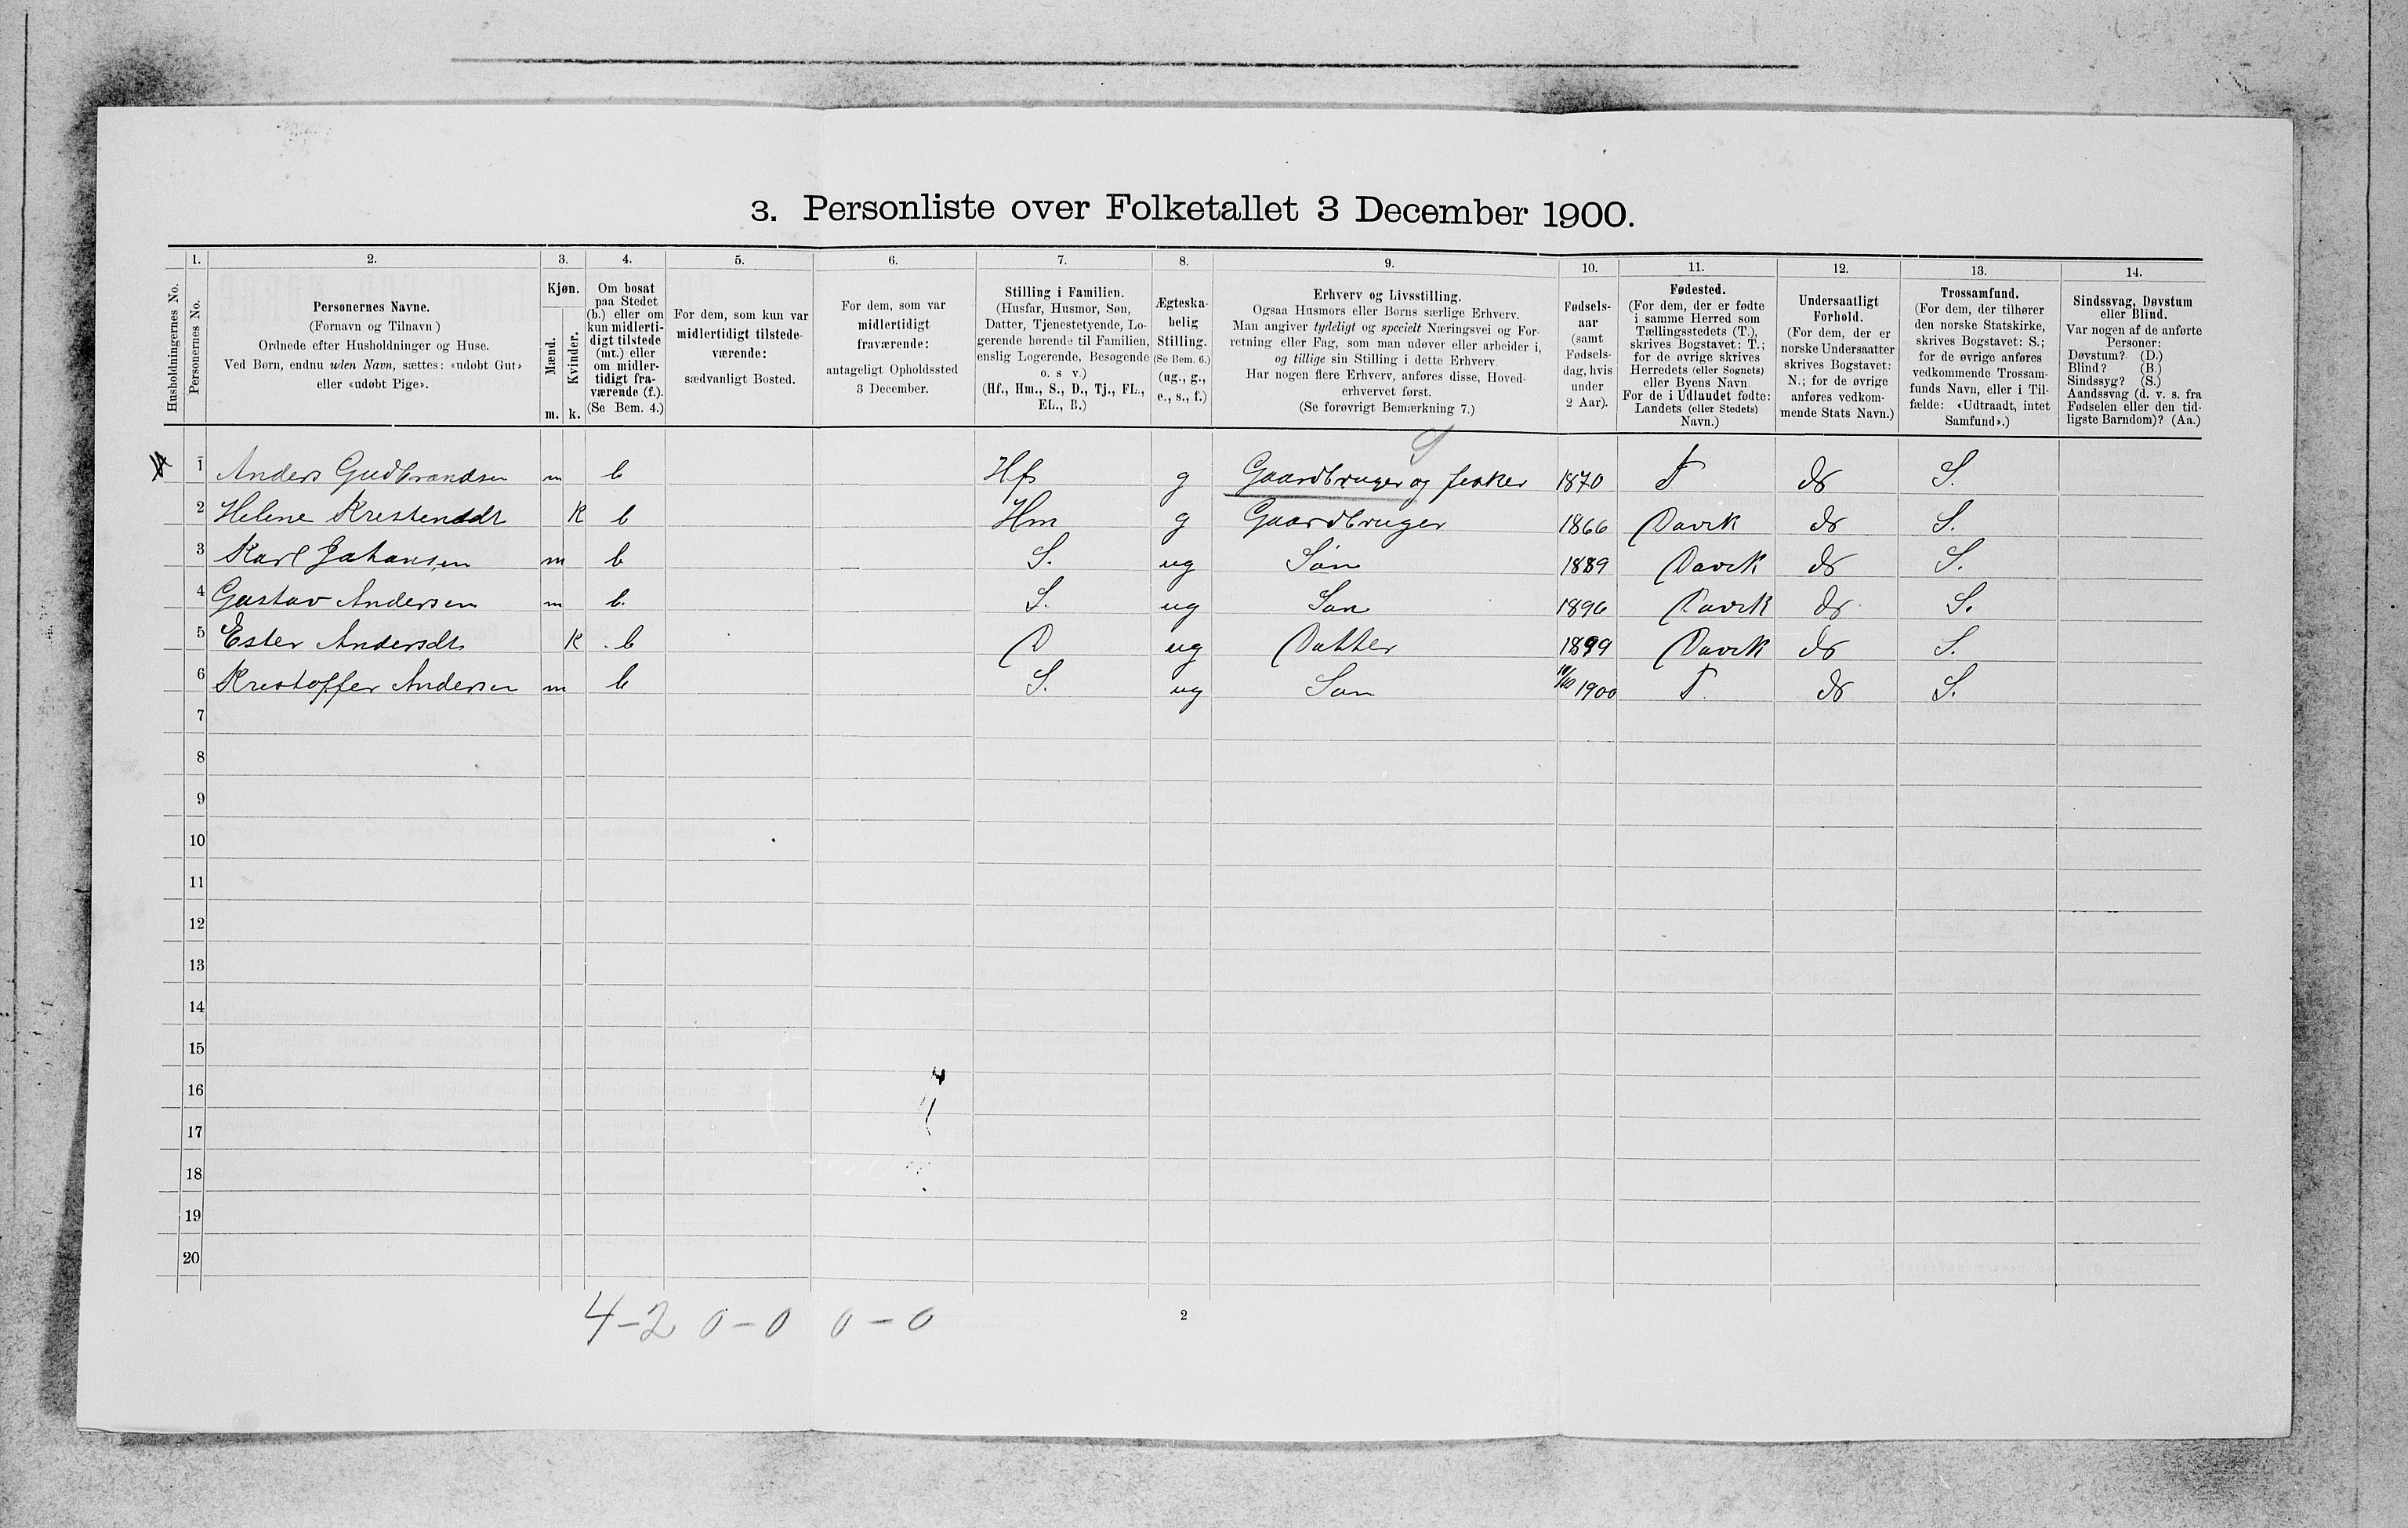 3. Personliste over Folketallet 3 December 1900.
1. 2. 3. 4. 5. 6. 7. 8. 9. 10. 11. 12. 13. 14.
Husholdningernes No.
Personernes No.
Personernes Navne.
(Fornavn og Tilnavn)
Ordnede efter Husholdninger og Huse.
Ved Børn, endnu uden Navn, sættes: «udøbt Gut»
eller «udøbt Pige».
Kjøn.
Mænd.
m.
Kvinder.
k.
Om bosat
paa Stedet
(b.) eller om
kun midlerti-
digt tilstede
(mt.) eller
om midler-
tidigt fra-
værende (f.).
(Se Bem. 4.)
For dem, som kun var
midlertidigt tilstede-
værende:
sædvanligt Bosted.
For dem, som var
midlertidigt
fraværende:
antageligt Opholdssted
3 December.
Stilling i Familien.
(Husfar, Husmor, Søn,
Datter, Tjenestetyende, Lo-
gerende hørende til Familien,
enslig Logerende, Besøgende
o. s v.)
(Hf., Hm., S., D., Tj., FL.,
EL., B.)
Ægteska-
belig
Stilling.
(Se Bem. 6.)
(ug., g.,
e., s., f.)
Erhverv og Livsstilling.
Ogsaa Husmors eller Børns særlige Erhverv.
Man angiver tydeligt og specielt Næringsvei og For-
retning eller Fag, som man udøver eller arbeider i,
og tillige sin Stilling i dette Erhverv.
Har nogen flere Erhverv, anføres disse, Hoved-
erhvervet først.
(Se forøvrigt Bemærkning 7.)
Fødsels-
aar
(samt
Fødsels-
dag, hvis
under
2 Aar).
Fødested.
(For dem, der er fødte
i samme Herred som
Tællingsstedets (T.),
skrives Bogstavet: T.;
for de øvrige skrives
Herredets (eller Sognets)
eller Byens Navn.
For de i Udlandet fødte:
Landets (eller Stedets)
Navn.)
Undersaatligt
Forhold.
(For dem, der er
norske Undersaatter
skrives Bogstavet:
N.; for de øvrige
anføres vedkom-
mende Stats Navn.)
Trossamfund.
(For dem, der tilhører
den norske Statskirke,
skrives Bogstavet: S.;
for de øvrige anføres
vedkommende Trossam-
funds Navn, eller i Til-
fælde: «Udtraadt, intet
Samfund».)
Sindssvag, Døvstum
eller Blind.
Var nogen af de anførte
Personer:
Døvstum? (D.)
Blind? (B.)
Sindssyg? (S.)
Aandssvag (d. v. s. fra
Fødselen eller den tid-
ligste Barndom)? (Aa.)
S
1 Anders Gudbrandsen m b Hf g Gaardbruger og fisker 1870 T N S.
2 Helene Kristensdt K b Hm g Gaardbruger 1866 Davik N S.
3 Karl Johansen m b S. ug Søn 1889 Davik N S.
4 Gustav Andersen m b. S. ug Søn 1896 Davik N S.
5 Ester Andersdt K b D ug Datter 1899 Davik N S.
6 Kristoffer Andersen m b S. ug Søn 10/10 1900 T. N S.
7
8
9
10
11
12
13
14
15
16
17
18
19
20
4-2 0-0 0-0
2